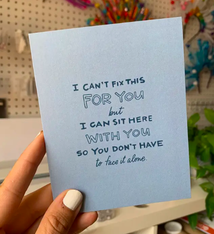 I CAN'T FIX THIS
FOR YOU
but
I CAN SIT HERE
WITH YOU
SO YOU DON'T HAVE
to face it alone.